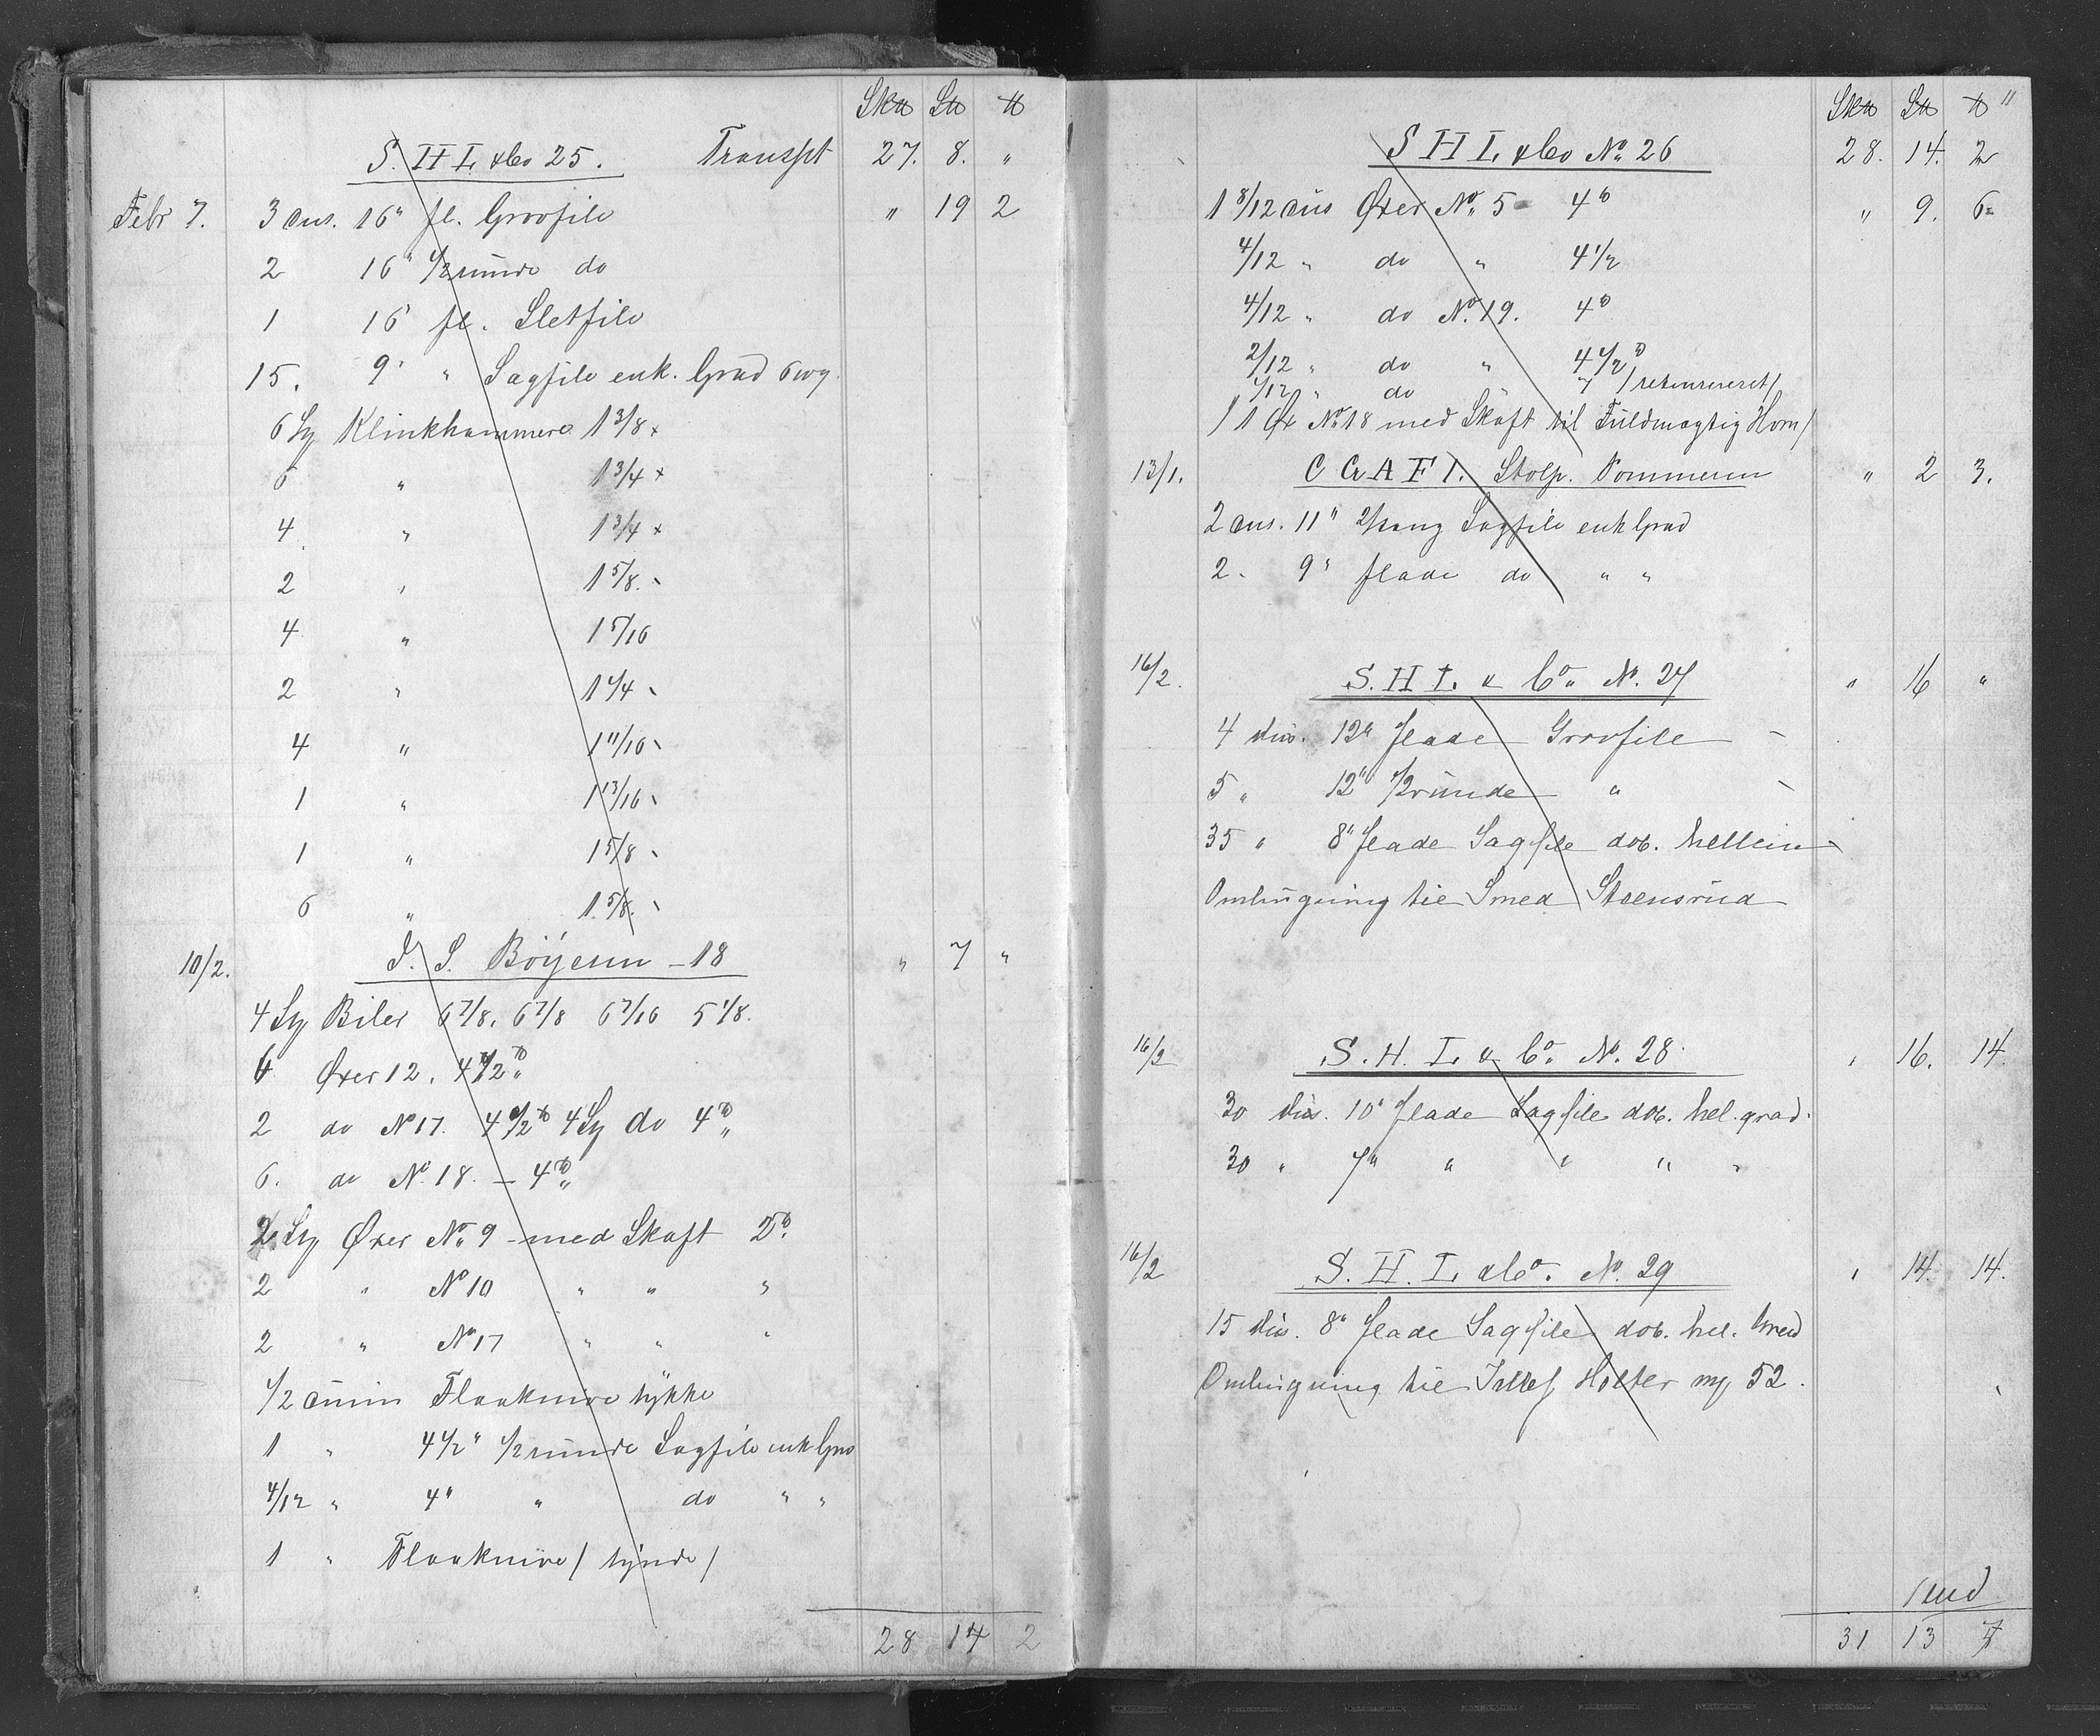 Sk℔ L℔ ℔
S. H I. & Co 25. Transpt 27. 8. "
Febr 7. 3 dus. 16" fl. Grovfile " 19 2
2 16" 1/2 runde do
1 16" fl. Sletfile
15. 9" " Sagfile enk. Grad
6 St Klinkhammere 1 3/8 x
6 " 1 3/4 x
4 " 1 3/4 x
2 " 1 5/8 "
4 " 1 5/16
2 " 1 1/4 "
4 " 1 11/16 "
1 " 1 13/16 "
1 " 1 5/8 "
6 " 1 5/8 "
10/2. S. Böÿesen - 18 " 7 "
4 St Biler 6 7/8, 6 7/8 6 7/16 5 1/8.
6 Øxer 12. 4 1/2 ℔
2 do No 17. 4 1/2 ℔ 4 St do 4 ℔
6. do No. 18. - 4 ℔
2 St Øxer No 9 - med Skaft 2 ℔.
2 " No 10 " " "
2 " No 17 " " "
1/2 dusin Flaaknive tÿkke
1 " 4 1/2" 1/2 runde Sagfile enk Gra
4/12 " 4" " do " "
1 " Flaaknive / tÿnde /
28 14 2
Sk℔ L℔ ℔ "
S H I. & Co No 26 28. 14. 2
1 8/12 dus Øxer No 5 4 ℔ " 9. 6
4/12 " do " 4 1/2
4/12 " do No. 19. 4 ℔
2/12 " do " 4 1/2 ℔
1/12 " do " / returneret /
/ 1 Øx No 18 med Skaft til Fuldmægtig Horn /
13/1. C G A F I. Stolp. Pommern " 2 3.
2 dus. 11" 2/kang Sagfile enk Grad
2 " 9" flade do " "
16/2. S. H I. & Co. No. 27 " 16 "
4 dus. 12" flade Grovfile -
5 " 12" 1/2 runde "
35 " 8" flade Sagfile dob. hellein
Omhugning til Smed Steensrud
16/2 S. H. I. & Co. No. 28 " 16. 14.
30 dus. 10" flade Sagfile dob. hel. grad.
30 " 7" " " " "
16/2 S. H. I. & Co. No. 29 " 14. 14.
15 dus. 8" flade Sagfile dob. hel. Grad
Omhugning til Holter 52.
31 13 7